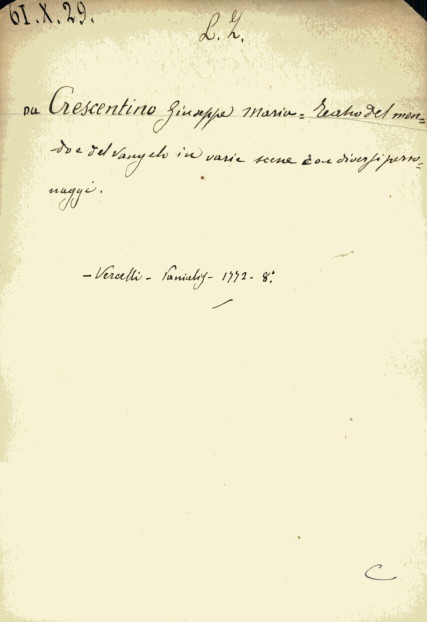 61.X.29.
L.Z.
Da Crescentino Giuseppe Maria = Teatro del mon=
do e del Vangelo in varie scene con diversi perso=
naggi.
- Vercelli - Panialis - 1772 - 8.°
C